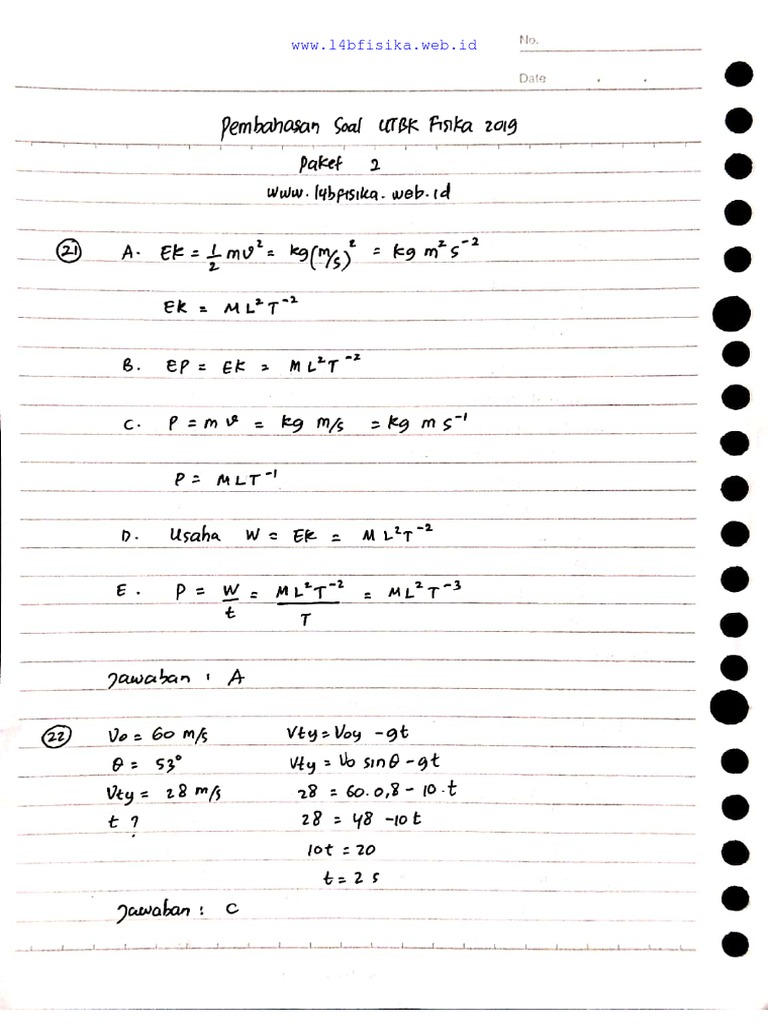 www.l4bfisika.web.id
No.
Date . .
Pembahasan Soal UTBK Fisika 2019
Paket 2
www.l4bfisika.web.id
21 A. EK = 1/2 mv² = kg(m/s)² = kg m² s⁻²
EK = ML²T⁻²
B. EP = EK = ML²T⁻²
C. P = m v = kg m/s = kg m s⁻¹
P = MLT⁻¹
D. Usaha W = EK = ML²T⁻²
E. P = W/t = ML²T⁻²/T = ML²T⁻³
Jawaban : A
22 Vo = 60 m/s Vty = Voy - gt
θ = 53° Vty = Vo sin θ - gt
Vty = 28 m/s 28 = 60.0,8 - 10.t
t ? 28 = 48 - 10t
10t = 20
t = 2 s
Jawaban : C